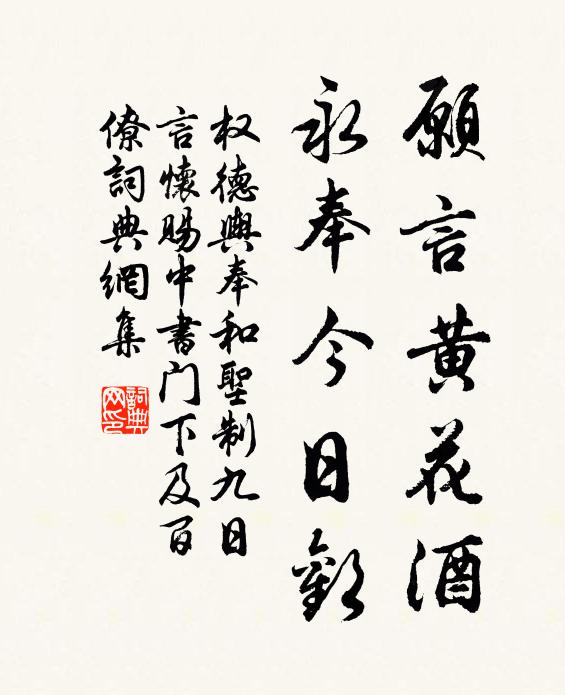 願言黃花酒
永奉今日歡
权德輿奉和聖制九日
言懷賜中書门下及百
僚詞典網集
詞典网印